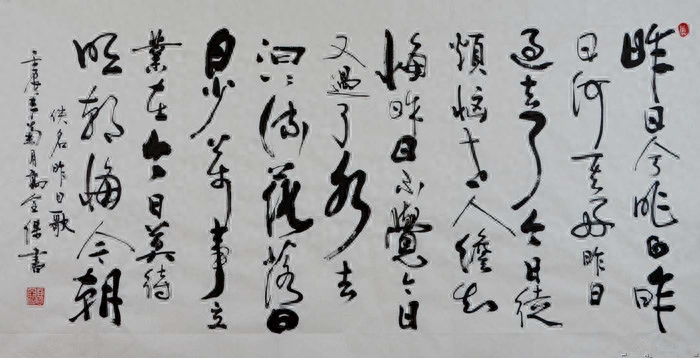 昨日兮昨日昨
日何其好昨日
過去了今日徒
煩惱世人知
悔昨日不覺今日
又過了水去
汩汩流花落日
日少萬事立
業在今日莫待
明朝悔今朝
佚名昨日歌
年菊月書